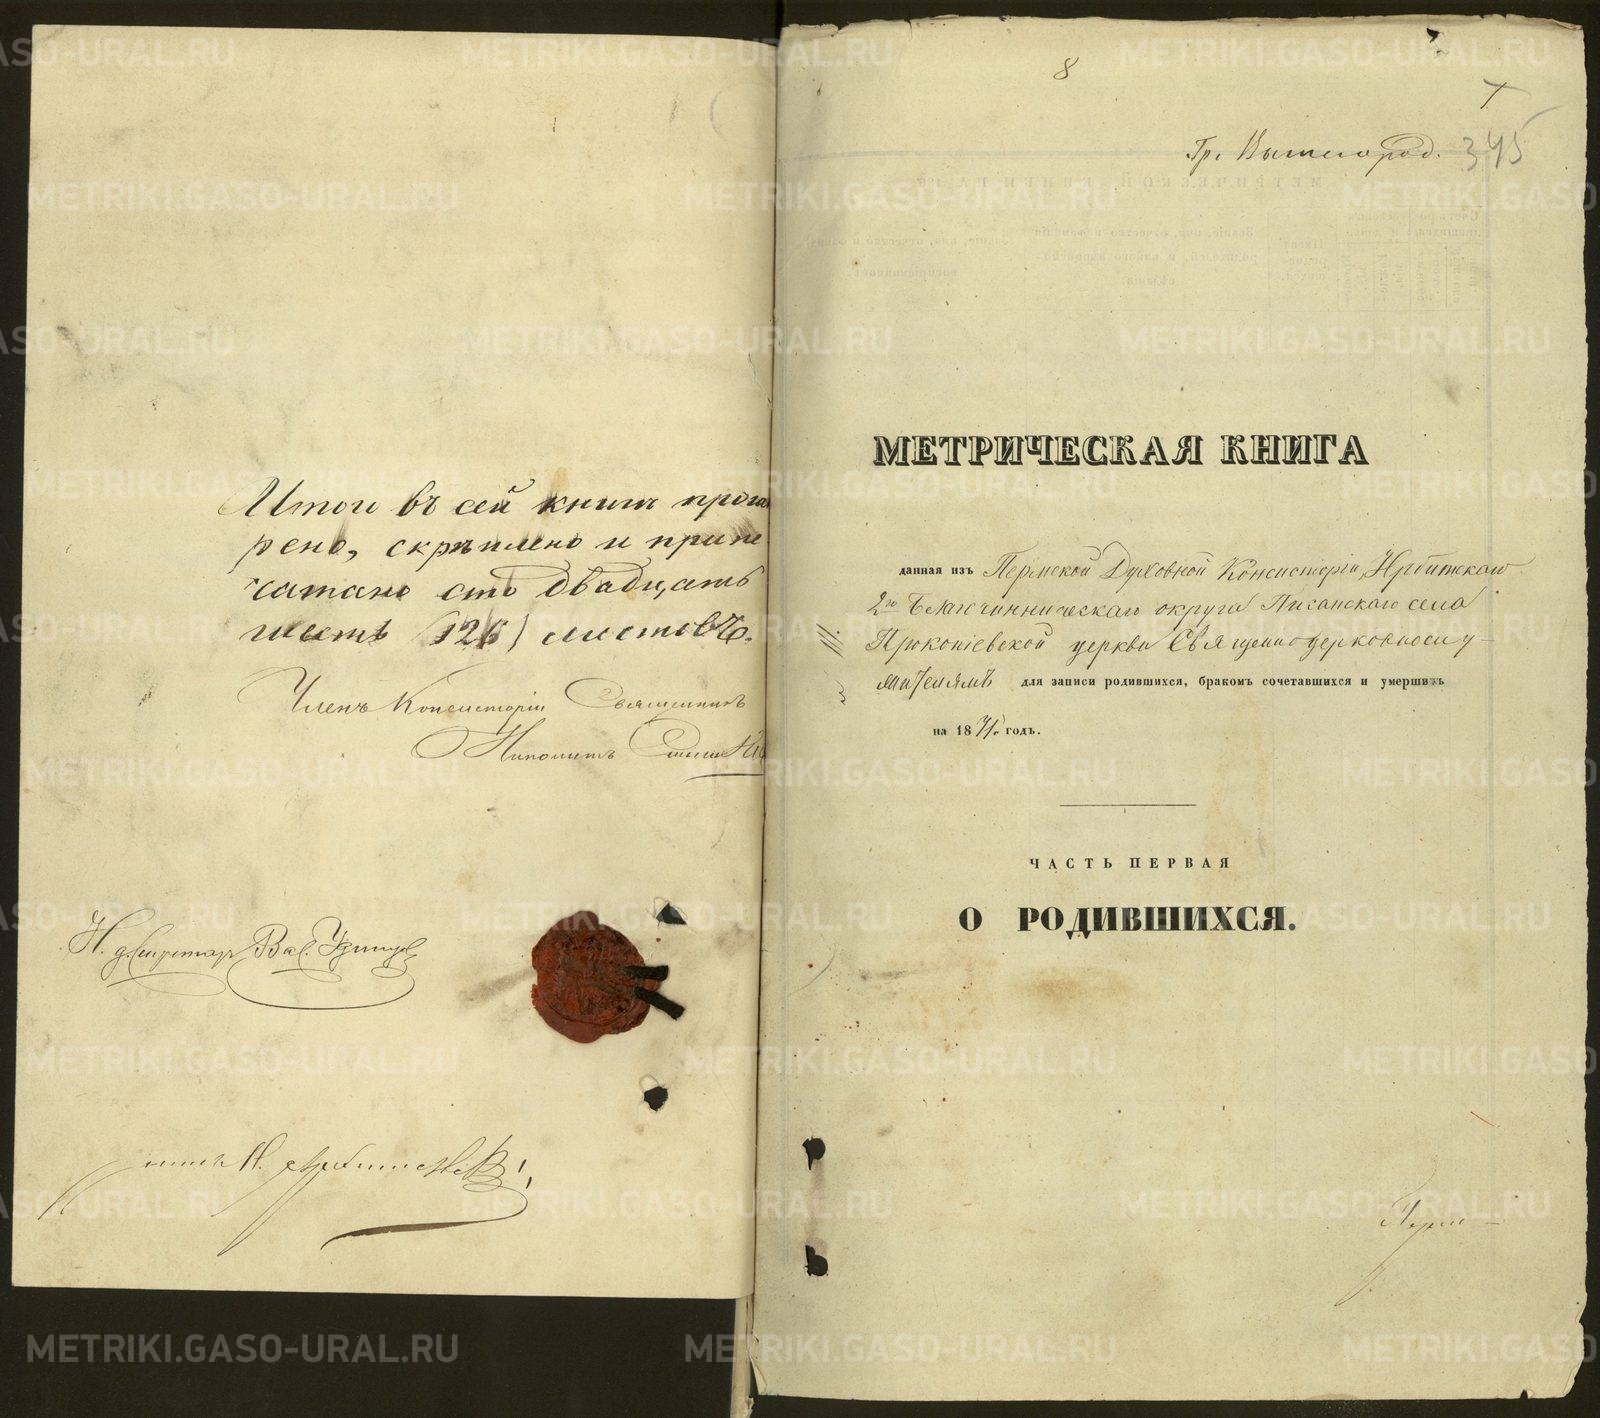 Итого въ сей книгѣ прошну
рено, скрѣплено и припе
чатано сто двадцать
шесть (126) листовъ.
Членъ Консисторіи Священникъ
8
345
МЕТРИЧЕСКАЯ КНИГА
данная изъ Пермской Духовной Консисторіи, Ирбитскаго
2го Благочинническаго округа Писанскаго села
Прокопіевской церкви Священноцерковнослу-
жителямъ для записи родившихся, бракомъ сочетавшихся и умершихъ
на 1871. годъ.
ЧАСТЬ ПЕРВАЯ
О РОДИВШИХСЯ.
METRIKI.GASO-URAL.RU